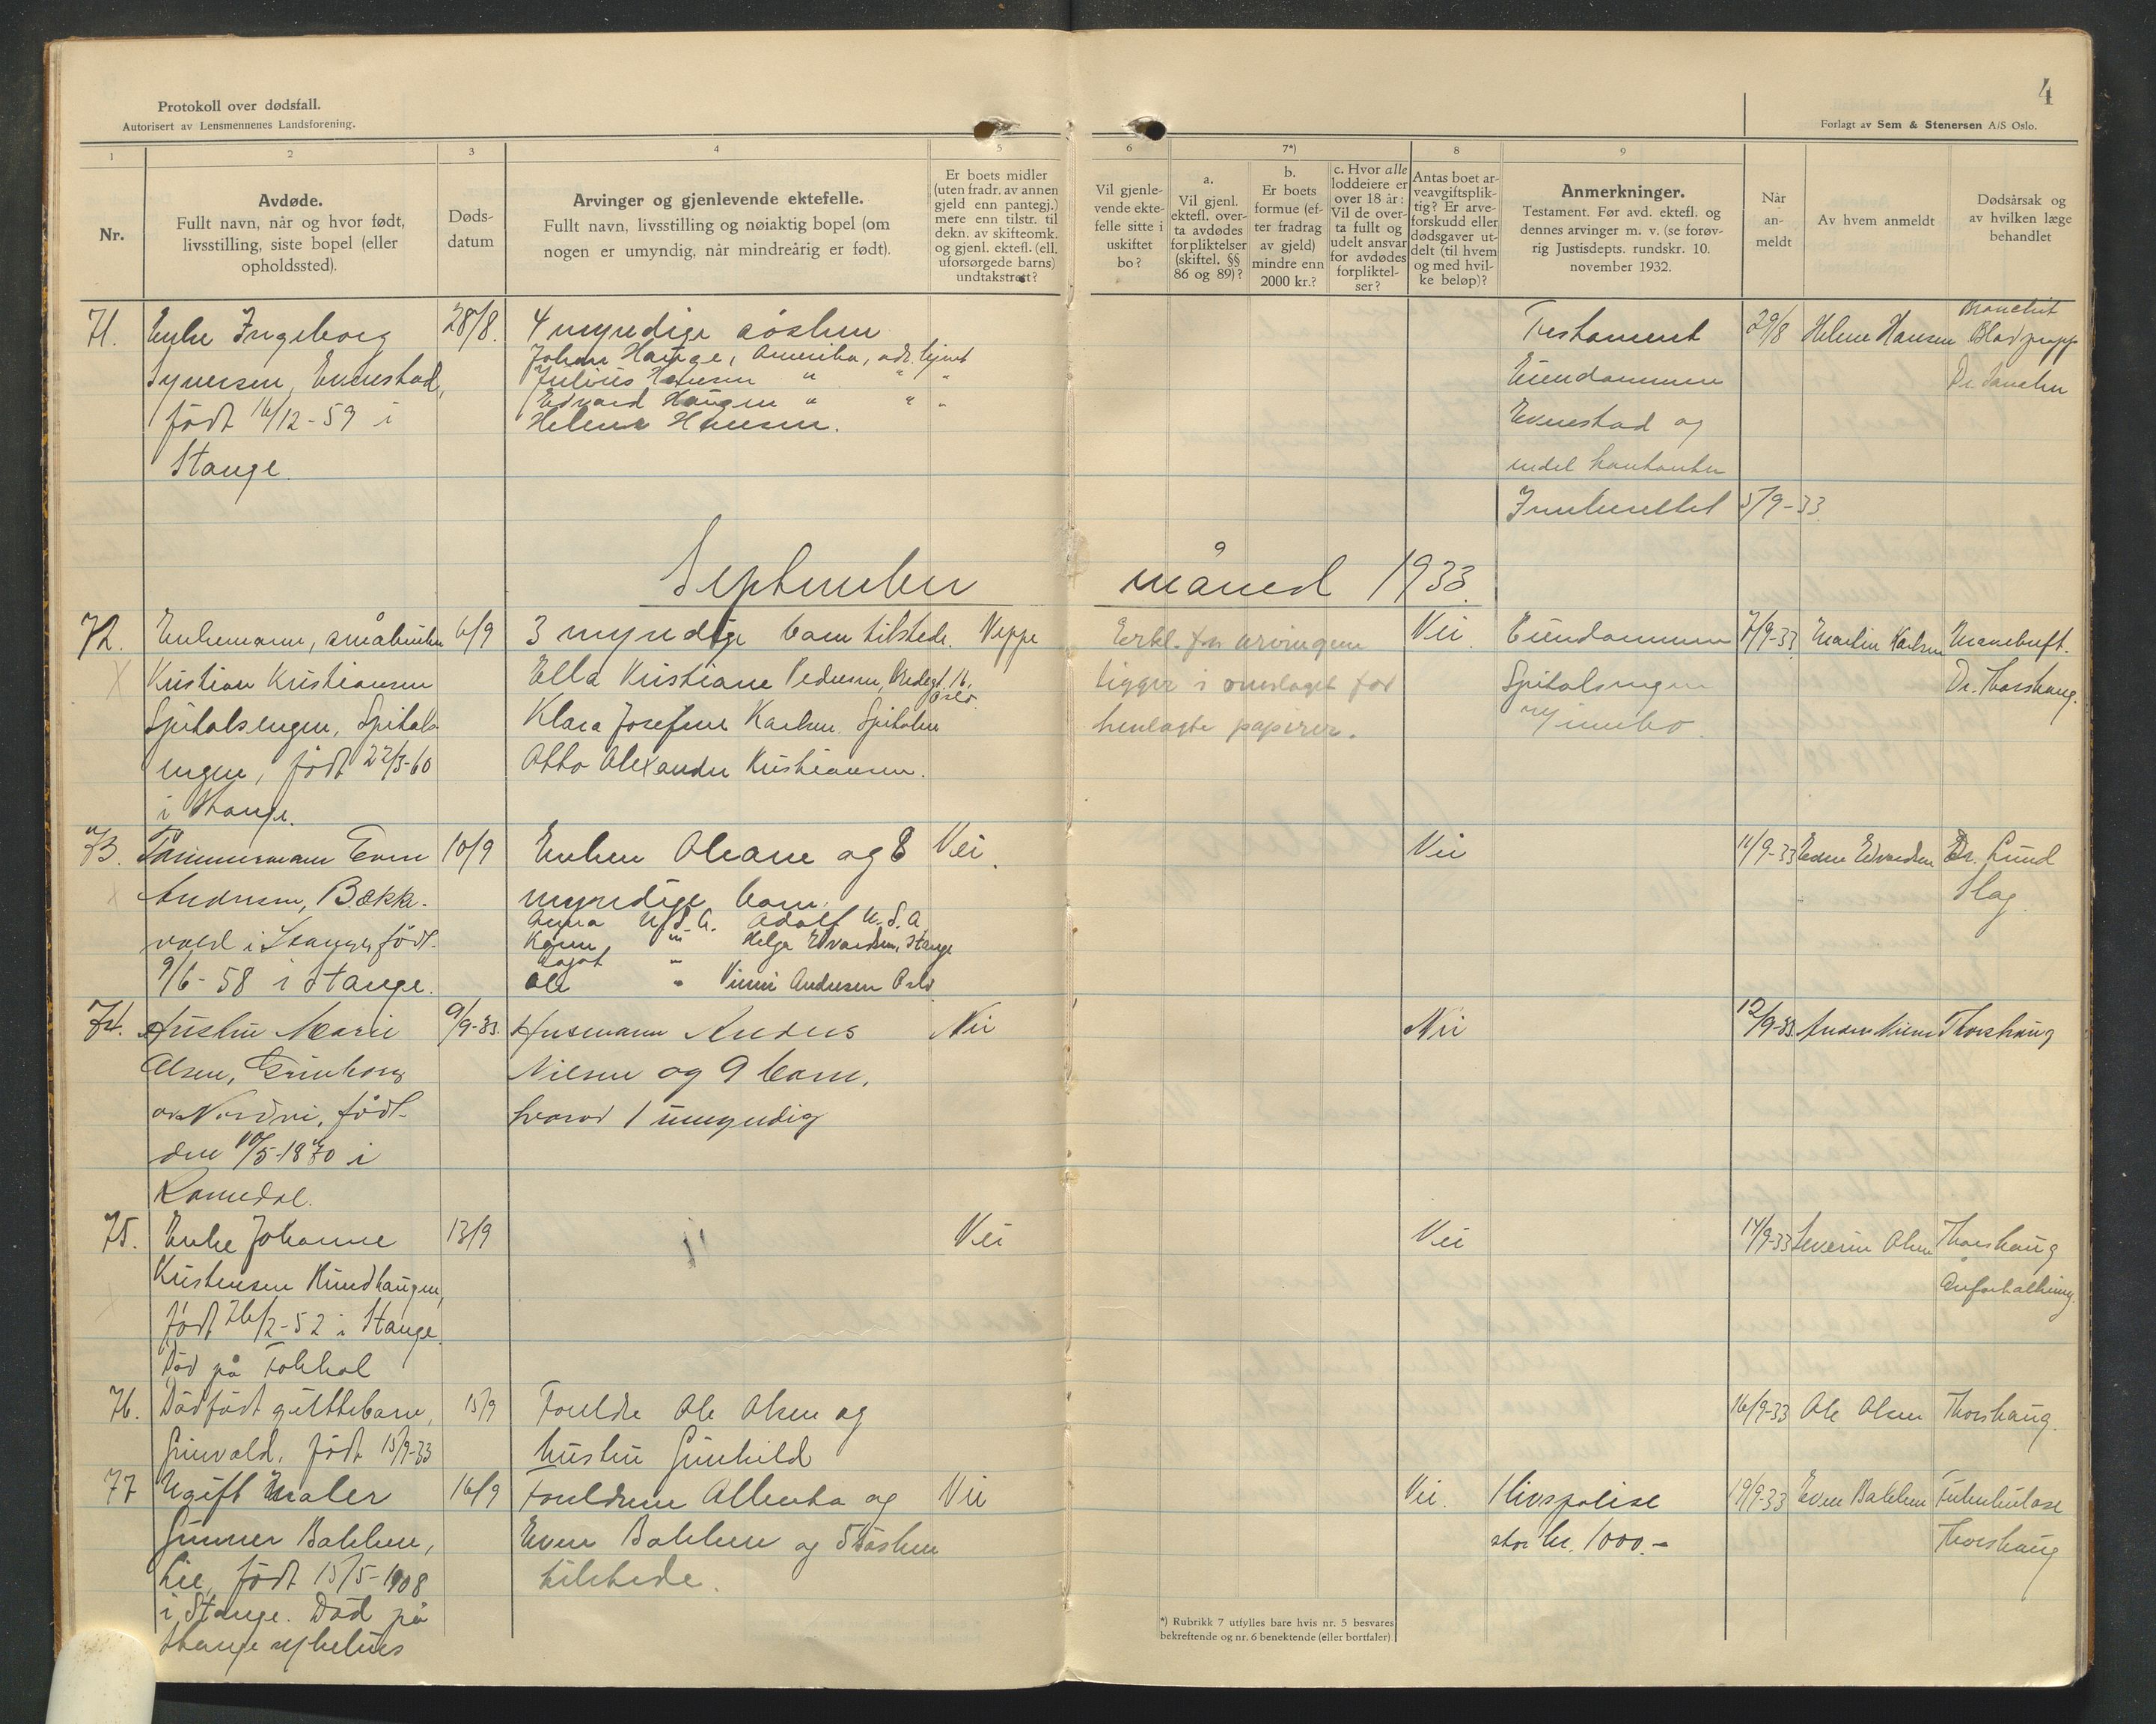 Protokoll over dødsfall.
Autorisert av Lensmennenes Landsforening.
4
Forlagt av Sem & Stenersen A/S Oslo.
1
2
3
4
5
6
7*)
8
9
Nr.
Avdøde.
Fullt navn, når og hvor født,
livsstilling, siste bopel (eller
opholdssted).
Døds-
datum
Arvinger og gjenlevende ektefelle.
Fullt navn, livsstilling og nøiaktig bopel (om
nogen er umyndig, når mindreårig er født).
Er boets midler
(uten fradr. av annen
gjeld enn pantegj.)
mere enn tilstr. til
dekn. av skifteomk.
og gjenl. ektefl. (ell.
uforsørgede barns)
undtaksrett?
Vil gjenle-
vende ekte-
felle sitte i
uskiftet
bo?
a.
Vil gjenl.
ektefl. over-
ta avdødes
forpliktelser
(skiftel. §§
86 og 89)?
b.
Er boets
formue (ef-
ter fradrag
av gjeld)
mindre enn
2000 kr.?
c. Hvor alle
loddeiere er
over 18 år:
Vil de over-
ta fullt og
udelt ansvar
for avdødes
forpliktel-
ser?
Antas boet ar-
veavgiftsplik-
tig? Er arve-
forskudd eller
dødsgaver ut-
delt (til hvem
og med hvil-
ke beløp)?
Anmerkninger.
Testament. Før avd. ektefl. og
dennes arvinger m. v. (se forøv-
rig Justisdepts. rundskr. 10.
november 1932.
Når
an-
meldt
Av hvem anmeldt
Dødsårsak og
av hvilken læge
behandlet
71.
Enke Ingeborg
Syversen, Evenstad,
født 16/12-59 i
Stange.
28/8.
4 myndige søsken
Johan Hauge, Amerika, adr. ukjent
Julius Hansen " " "
Edvard Haugen " " "
Helene Hansen.
Testament
Eiendommen
Evenstad og
endel kontanter
Innberettet 5/9-33
29/8
Helene Hansen
Bronchit
Blodpropp
September måned 1933.
72.
Enkemann, småbruker
Kristian Kristiansen
Spitalsengen, Spitals-
engen, født 22/3-60
i Stange.
6/9
3 myndige barn tilstede.
Ella Kristiane Pedersen, Oslo
Klara Josefine Karlsen. Spitalen
Otto Alexander Kristiansen.
Neppe
Erkl. fra arvingene
ligger i omslaget for
henlagte papirer.
Nei.
Eiendommen
Spitalsengen
m/innbo.
7/9-33
Martin Karlsen
Mavekreft.
Dr. Thorshaug.
73.
Tømmermann Even
Andersen, Bække-
vold i Stange, født
9/6-58 i Stange.
10/9
Enken Oleane og 8
myndige barn.
Anna U.S.A. Adolf U.S.A
Karen " Helga Edvardsen, Stange
Ragot "
Ole " Vinni Andersen Oslo
Nei.
Nei
11/9-33
Edvardsen
Dr. Lund
Slag.
74.
Hustru Marie
Olsen, Grinborg
av Nordvi, født
den 10/5-1870 i
Romedal.
9/9-33.
Husmann Anders
Nilsen og 9 barn,
hvorav 1 umyndig
Nei
Nei
12/9-33.
Anders Nilsen
Thorshaug
75.
Enke Johanne
Kristensen Rundhaugen,
født 26/2-52 i Stange.
Død på Tokhol
13/9
Nei
Nei
14/9-33
Severin Olsen
Thorshaug
Åreforkalkning.
76.
Dødfødt guttebarn,
Grinvold, født 15/9-33
15/9
Foreldre Ole Olsen og
hustru Gunhild
16/9-33
Ole Olsen
Thorshaug.
77
Ugift Maler
Gunner Bakken,
Lie, født 15/5-1908
i Stange. Død på
Stange sykehus
16/9
Foreldrene Alberta og
Even Bakken og 5 søsken
tilstede.
Nei
Nei.
1 livspolise
stor kr. 1000.-
19/9-33
Even Bakken
Tuberkulose
Thorshaug
*) Rubrikk 7 utfylles bare hvis nr. 5 besvares
bekreftende og nr. 6 benektende (eller bortfaler)